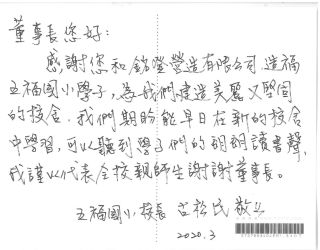 董事長您好：
感謝您和銘登營造有限公司造福
五福國小學子，為我們建造美麗又堅固
的校舍。我們期盼能早日在新的校舍
中學習，可以聽到學子們的朗朗讀書聲，
我謹以代表全校親師生謝謝董事長。
五福國小校長 古松民 敬上
2020.3